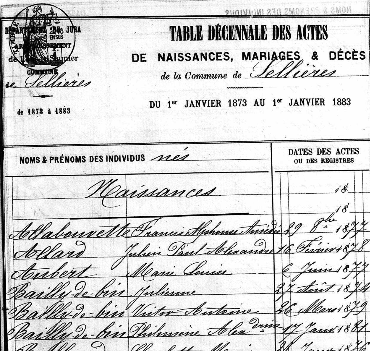 DÉPARTEMENT DU JURA
TABLE DÉCENNALE DES ACTES
ARRONDISSEMENT
DE NAISSANCES, MARIAGES & DÉCÈS
COMMUNE
de la Commune de Sellières
de Sellières
DU 1er JANVIER 1873 AU 1er JANVIER 1883
de 1873 à 1883
NOMS & PRÉNOMS DES INDIVIDUS nés
DATES DES ACTES
OU DES REGISTRES
Naissances
18
18
Allabouvette Francis Alphonse 29 8bre 1877
Allard Julien Paul Alexandre 16 Février 1878
Aubert Marie Louise 6 Juin 1877
Bailly-de-bin Julienne 27 Août 1874
Bailly-de-bin Victor Antoine 26 Mars 1879
Bailly-de-bin Philomène 17 Janv 1881